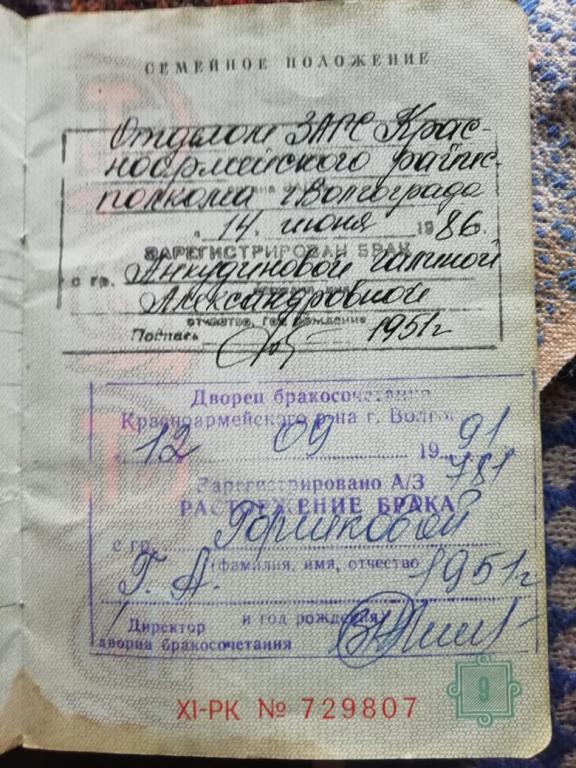 СЕМЕЙНОЕ ПОЛОЖЕНИЕ
Отделом ЗАГС Крас-
ноармейского райис-
полкома г Волгограда
" 14 " июня 1986 г.
ЗАРЕГИСТРИРОВАН БРАК
с гр. Анкудиновой Галиной
Александровной
отчество, год рождения
Подпись 1951г
Дворец бракосочетания
Красноармейского р-на г. Волгог
12 09 1991
Зарегистрировано А/З 781
РАСТОРЖЕНИЕ БРАКА
с гр. Горшковой
Г. А. (фамилия, имя, отчество 1951г
и год рождения)
Директор
дворца бракосочетания
9
XI-РК № 729807